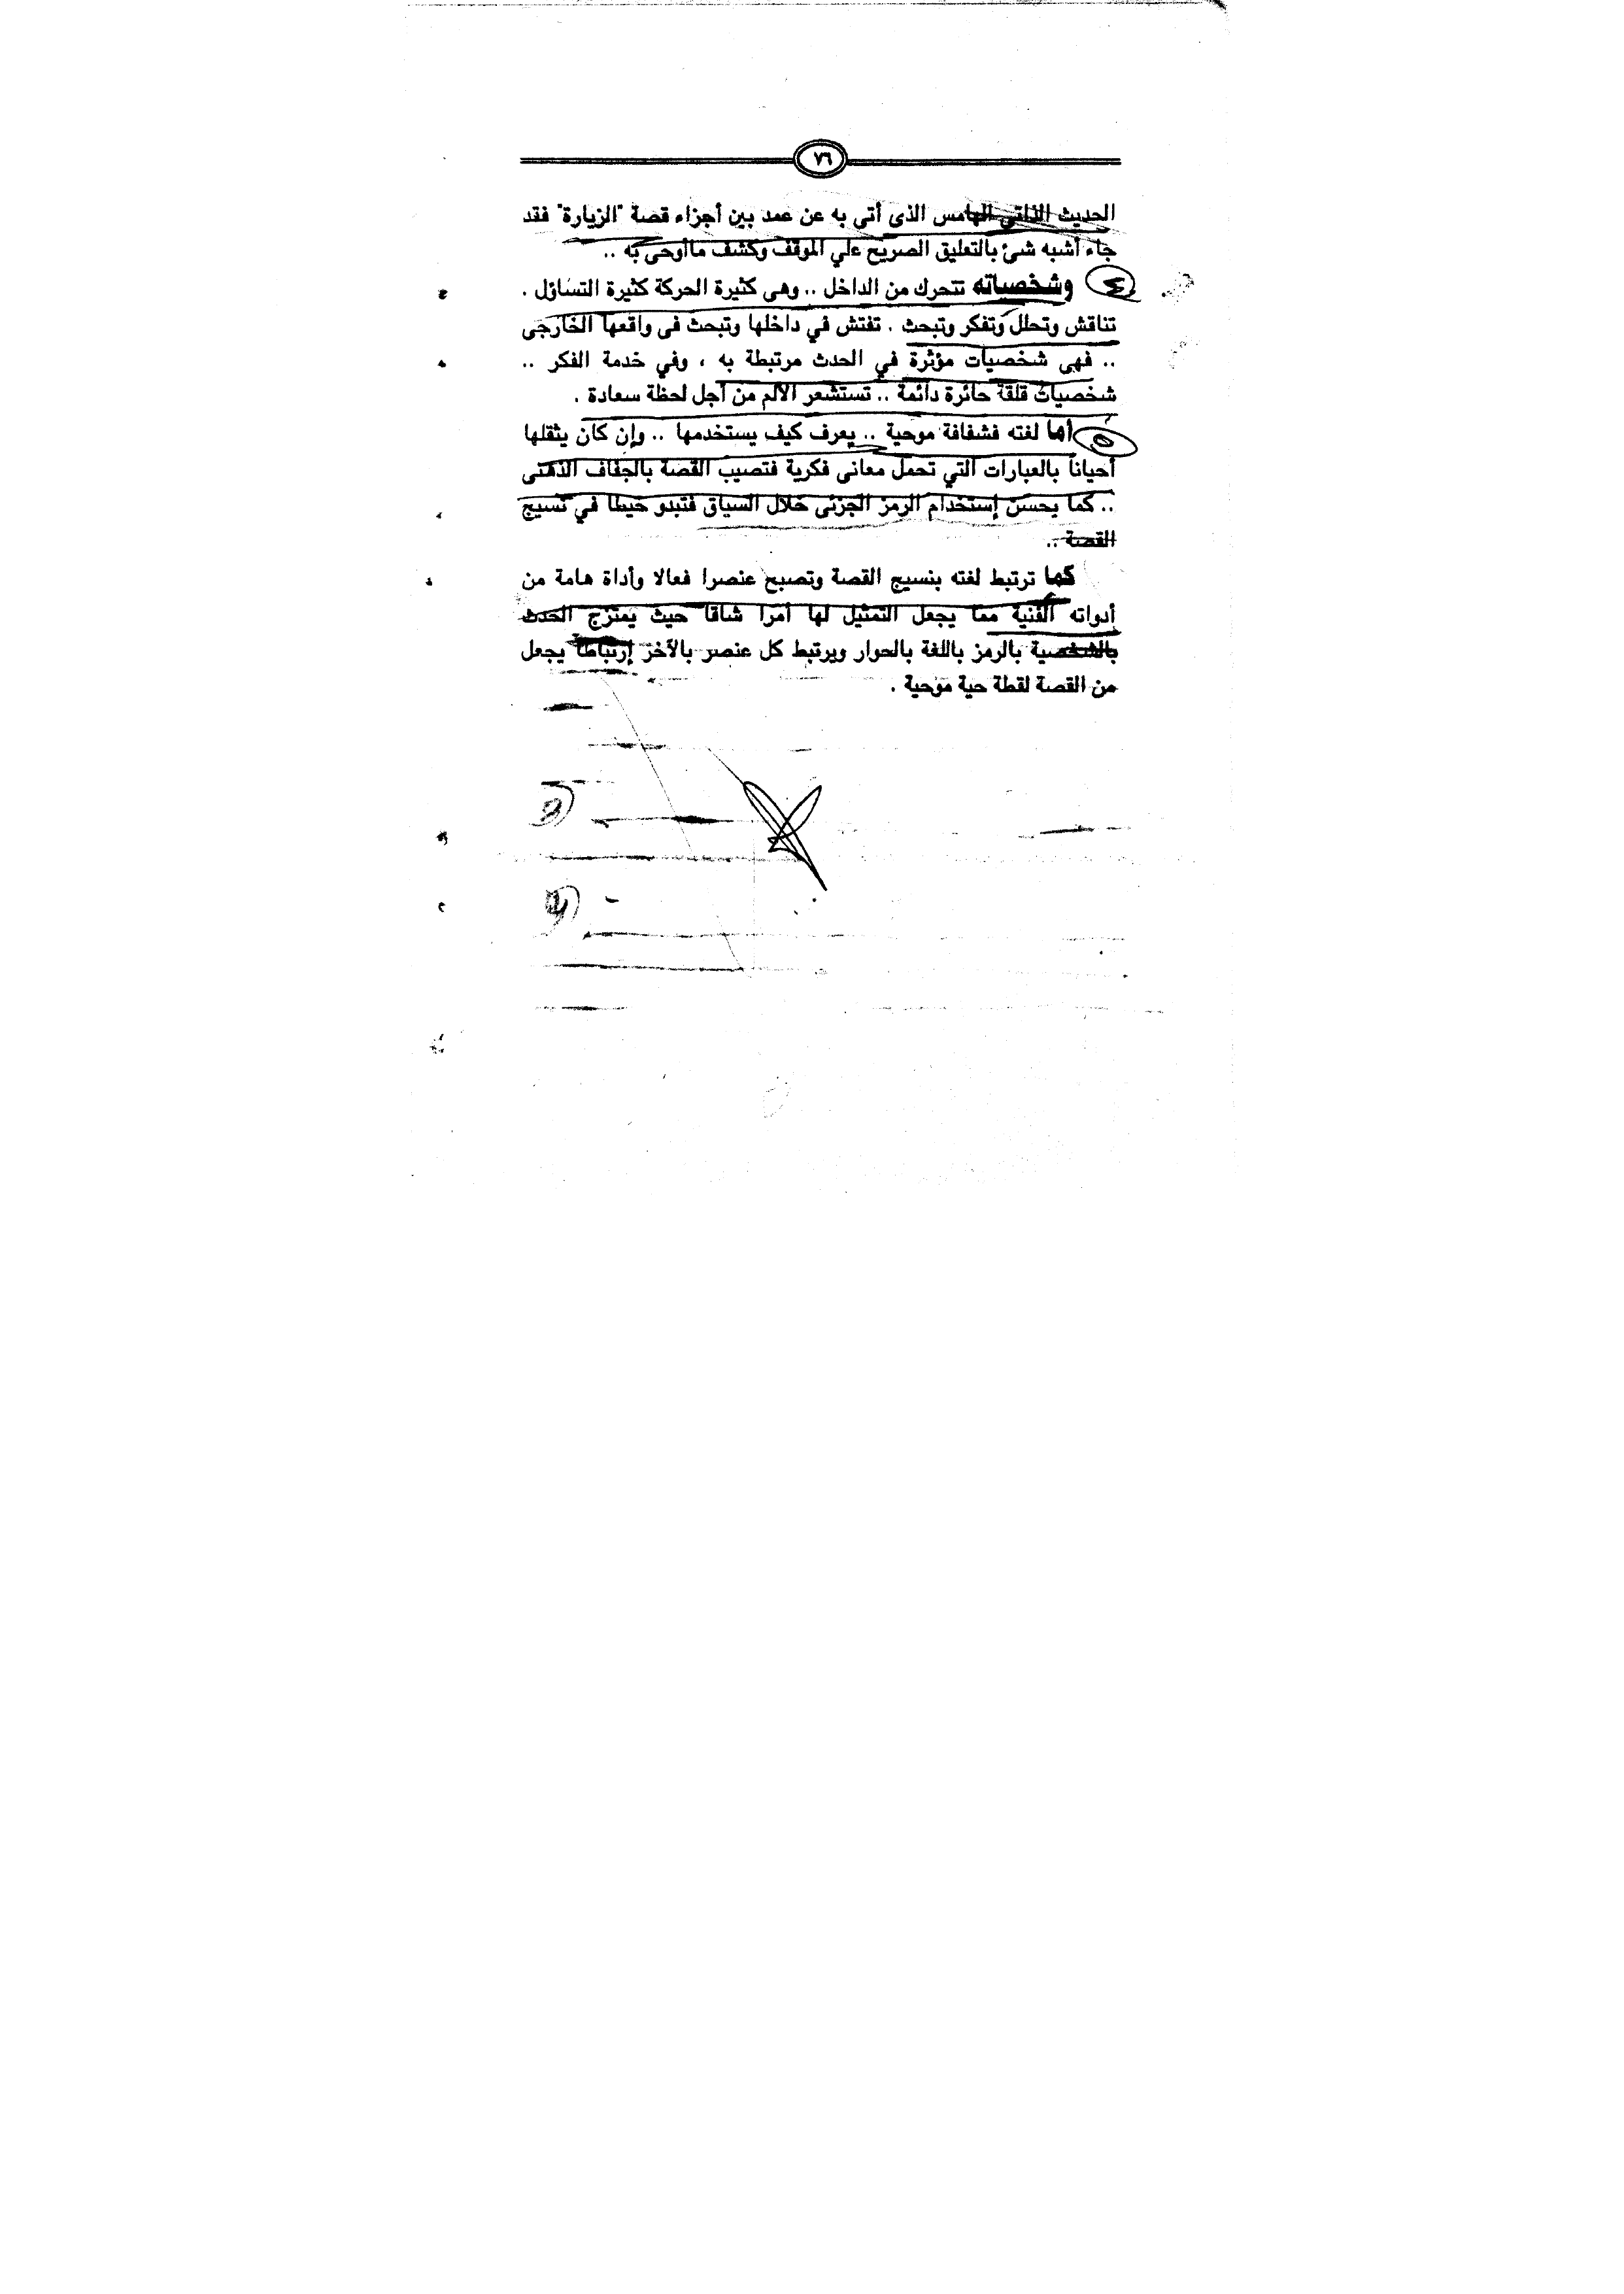 ٧٦
الحديث الذاتي الهامس الذى أتى به عن عمد بين أجزاء قصة "الزيارة" فقد
جاء أشبه شئ بالتعليق الصريح علي الموقف وكشف ماأوحى به ..
٤ وشخصياته تتحرك من الداخل .. وهى كثيرة الحركة كثيرة التساؤل .
تناقش وتحلل وتفكر وتبحث . تفتش في داخلها وتبحث فى واقعها الخارجى
.. فهى شخصيات مؤثرة في الحدث مرتبطة به ، وفي خدمة الفكر ..
شخصيات قلقة حائرة دائمة .. تستشعر الألم من أجل لحظة سعادة .
٥ أما لغته فشفافة موحية .. يعرف كيف يستخدمها .. وإن كان يثقلها
أحياناً بالعبارات التي تحمل معانى فكرية فتصيب القصة بالجفاف الذهنى
.. كما يحسن إستخدام الرمز الجزئى خلال السياق فتبدو خيطا في نسيج
القصة ..
كما ترتبط لغته بنسيج القصة وتصبح عنصرا فعالا وأداة هامة من
أدواته الفنية مما يجعل التمثيل لها أمرا شاقا حيث يمتزج الحدث
بالشخصية بالرمز باللغة بالحوار ويرتبط كل عنصر بالآخر إرتباطا يجعل
من القصة لقطة حية موحية .